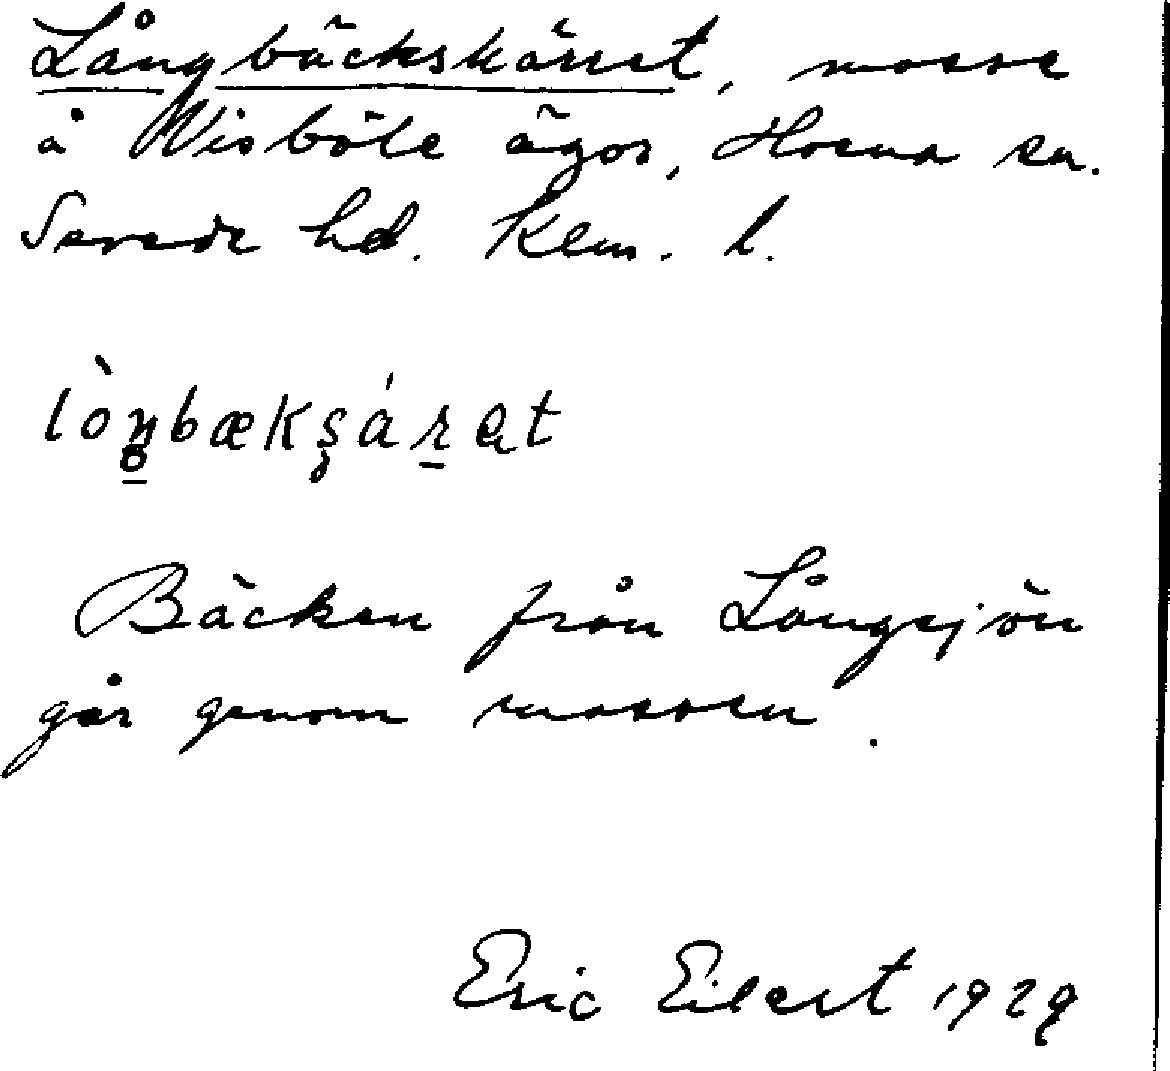 Långbäckskärret, mosse
å Wisböle ägor, sn.
Sevede hd. Klm. l.
lòŋ̥bækʂáɽət
Bäcken från Långsjön
går genom mossen.
Eric Eilert 1929